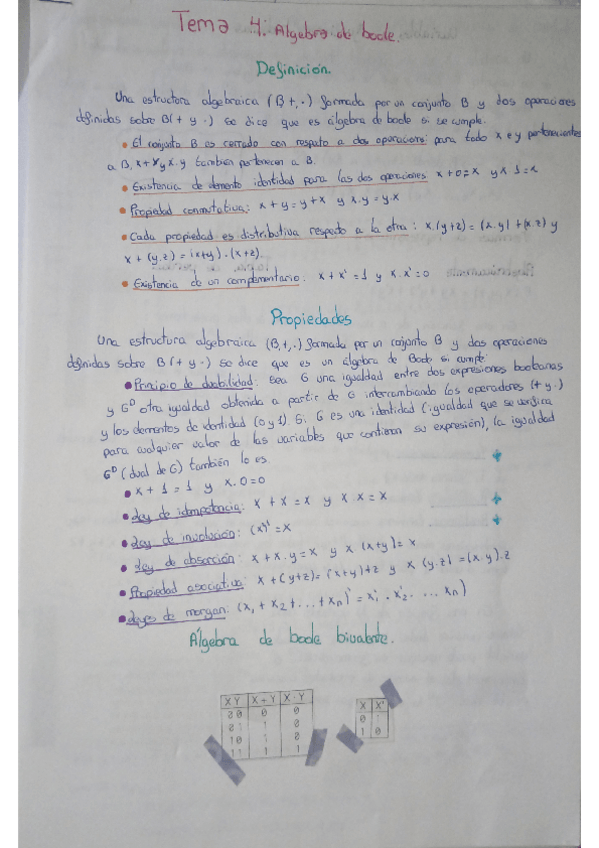 Tema 4: Algebra de boole.
Definición.
Una estructura algebraica (B+,·) formada por un conjunto B y dos operaciones
definidas sobre B(+ y ·) se dice que es álgebra de boole si se cumple.
• El conjunto B es cerrado con respeto a dos operacions: para todo x e y pertenecientes
a B, x+y y x.y tambien pertenecen a B.
• Existencia de elemento identidad para las dos operaciones x+0=x y x·1=x
• Propiedad conmutativa: x+y=y+x y x.y=y.x
• Cada propiedad es distributiva respecto a la otra: x.(y+z)=(x.y)+(x.z) y
x+(y.z)=(x+y).(x+z).
• Existencia de un complementario: x+x'=1 y x.x'=0
Propiedades
Una estructura algebraica (B,+,.) formada por un conjunto B y dos operaciones
definidas sobre B(+ y ·) se dice que es un álgebra de Boole si cumple:
• Principio de dualidad: sea G una igualdad entre dos expresiones booleanas
y G^D otra igualdad obtenida a partir de G intercambiando los operadores (+ y .)
y los elementos de identidad (0 y 1). Si G es una identidad (igualdad que se verifica
para cualquier valor de las variables que contienen su expresión), la igualdad
G^D (dual de G) también lo es.
• x+1=1 y x.0=0
• Ley de idempotencia: x+x=x y x.x=x
• Ley de involución: (x')'=x
• Ley de absorción: x+x.y=x y x(x+y)=x
• Propiedad asociativa: x+(y+z)=(x+y)+z y x(y.z)=(x.y).z
• Leyes de morgan: (x1+x2+...+xn)'=x1'.x2'. ... xn)
Álgebra de boole bivalente.
X Y X+Y X·Y X X'
0 0 0 0 0 1
0 1 1 0 1 0
1 0 1 0
1 1 1 1